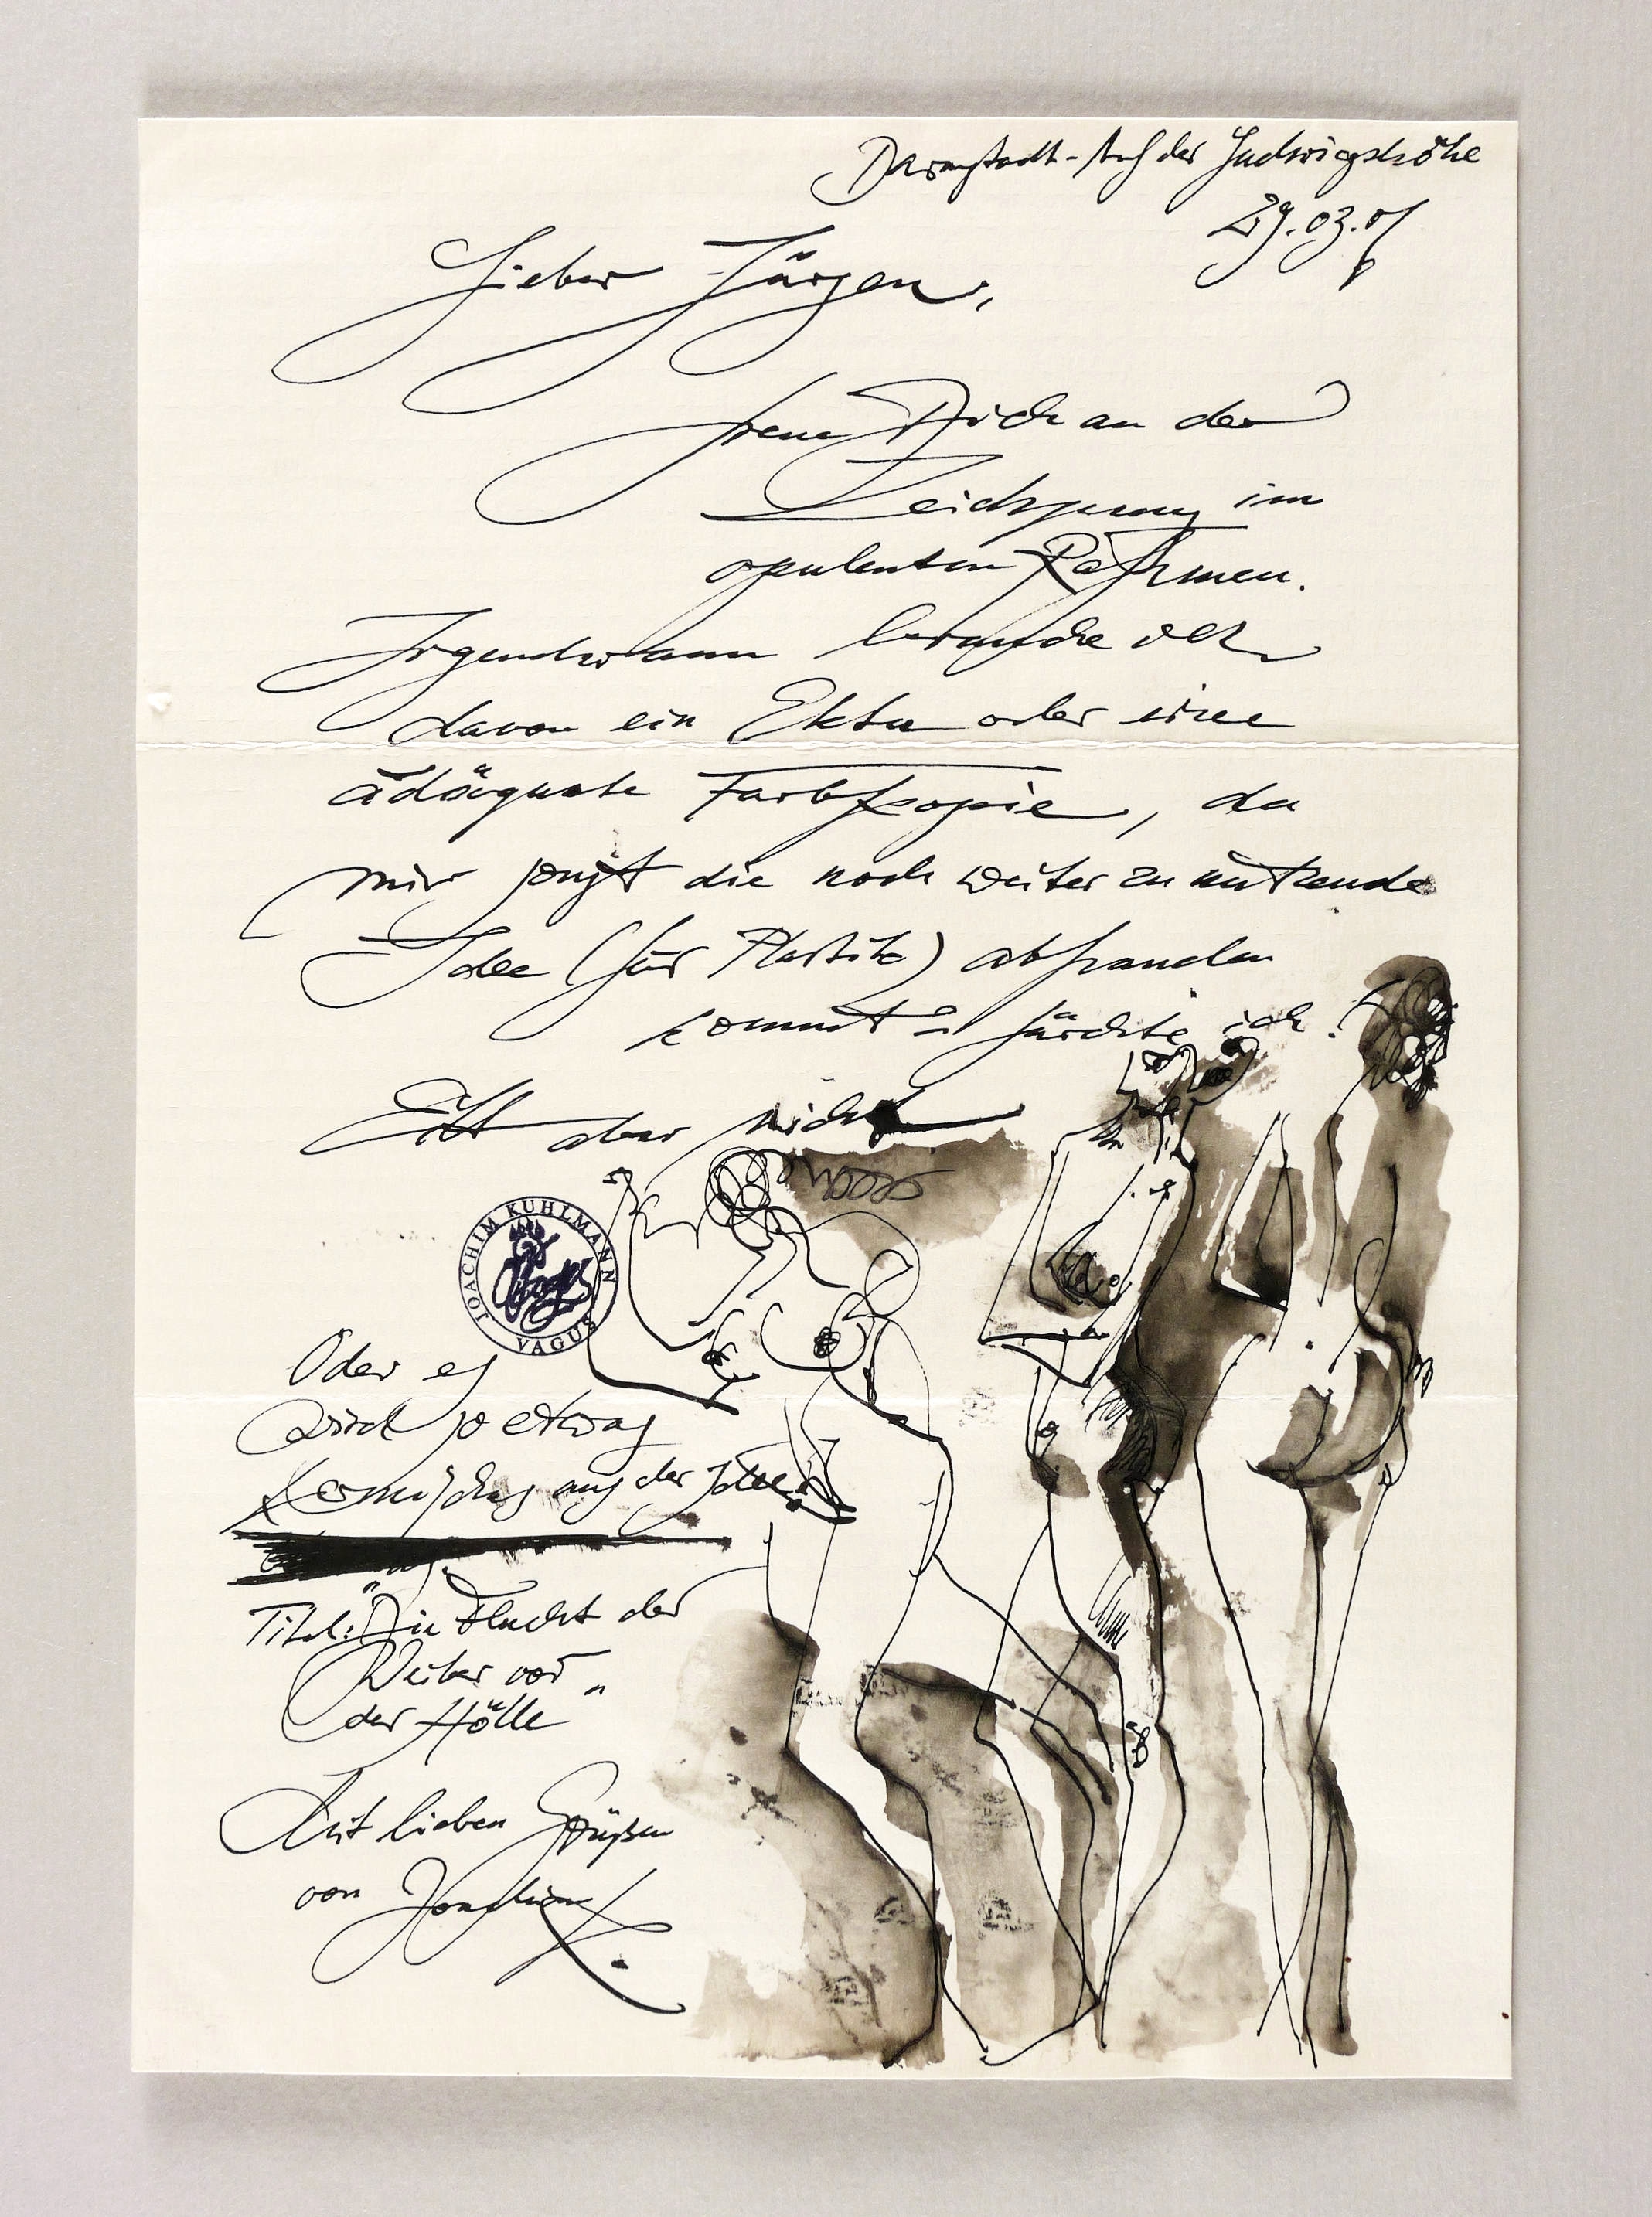 Darmstadt - Auf der Ludwigshöhe
29.03.01
Lieber Jürgen,
freue Dich an der
Zeichnung im
opulenten Rahmen.
Irgendwann brauche ich
davon ein Ekta oder eine
adäquate Farbkopie, da
mir sonst die noch weiter zu nutzende
Idee (für Plastik) abhanden
kommt fürchte ich!
Eilt aber nicht
JOACHIM KUHLMANN
VAGUS
Oder es
wird so etwas
Komisches aus der Idee
Titel: "Die Flucht der
Weiber vor
der Hölle"
Mit lieben Grüßen
von Joachim K.